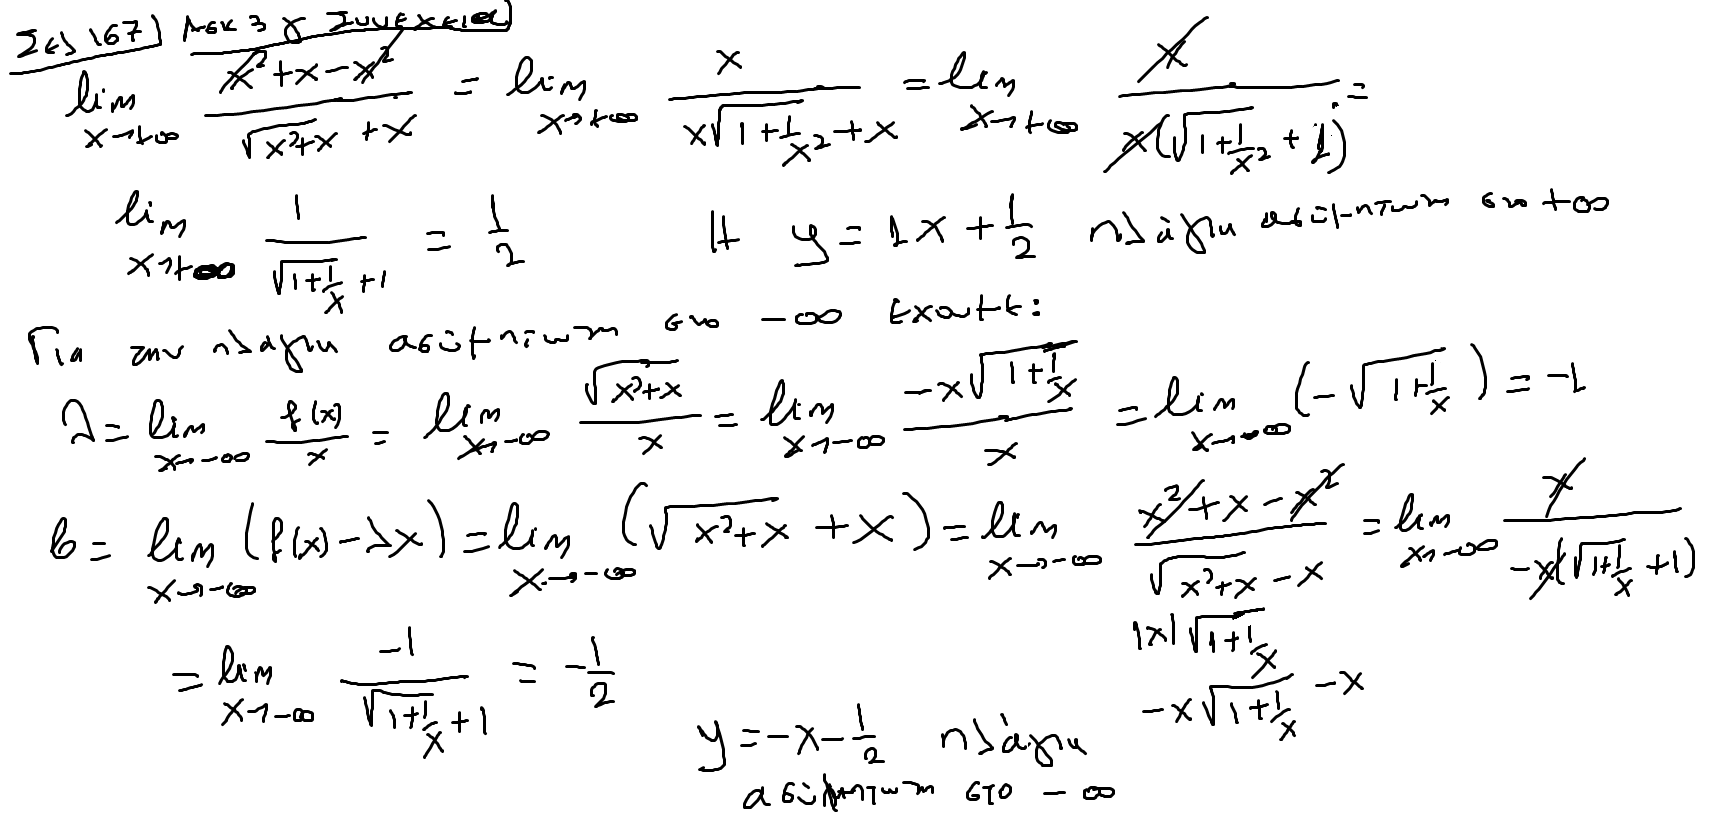 Σελ 167) Ασκ 3 γ Συνέχεια
lim x→+∞ (x²+x-x²)/(√(x²+x) +x) = lim x→+∞ x/(x√(1+1/x²)+x) = lim x→+∞ x/(x(√(1+1/x²)+1)) =
lim x→+∞ 1/(√(1+1/x)+1) = 1/2 Η y=1x+1/2 πλάγια ασύμπτωτη στο +∞
Για την πλάγια ασύμπτωτη στο -∞ έχουμε:
λ= lim x→-∞ f(x)/x = lim x→-∞ √(x²+x)/x = lim x→-∞ (-x√(1+1/x))/x = lim x→-∞ (-√(1+1/x)) = -1
β= lim x→-∞ (f(x)-λx) = lim x→-∞ (√(x²+x) +x) = lim x→-∞ (x²+x-x²)/(√(x²+x) -x) = lim x→-∞ x/(-x(√(1+1/x)+1))
|x|√(1+1/x)
= lim x→-∞ -1/(√(1+1/x)+1) = -1/2 -x√(1+1/x) -x
y=-x-1/2 πλάγια
ασύμπτωτη στο -∞